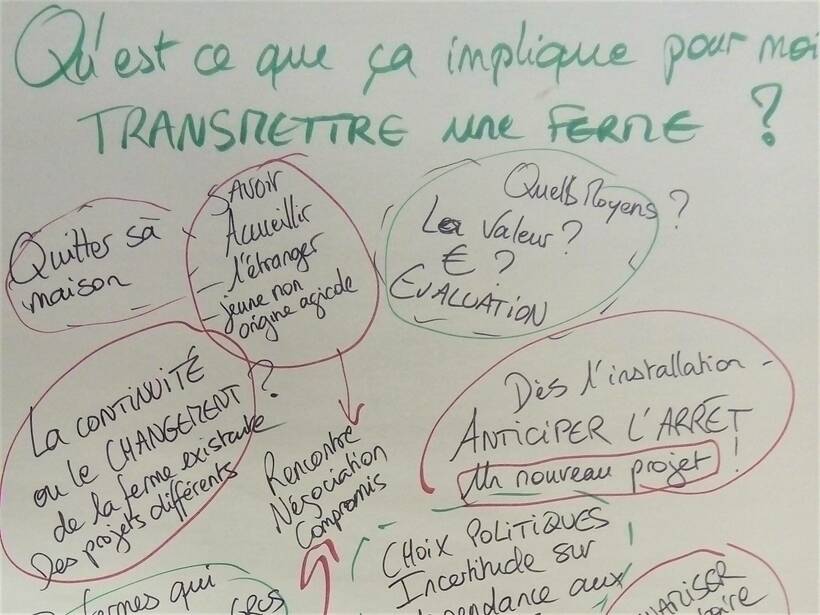 Qu'est ce que ça implique pour moi
TRANSMETTRE une FERME ?
Quitter sa
maison
SAVOIR
Accueillir
– l'étranger
– jeune non
origine agricole
Quels Moyens ?
La Valeur ?
€ ?
EVALUATION
La CONTINUITÉ
ou le CHANGEMENT ?
de la ferme existante
Des projets différents
Rencontre
Négociation
Compromis
Dès l'installation -
ANTICIPER L'ARRÊT
Un nouveau projet !
CHOIX POLITIQUES
Incertitude sur
pendance aux
fermes qui